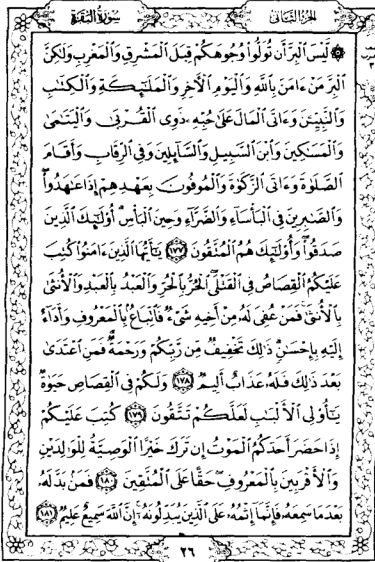 سورة البقرة
الجزء الثانى
۞ لَّيْسَ ٱلْبِرَّ أَن تُوَلُّوا۟ وُجُوهَكُمْ قِبَلَ ٱلْمَشْرِقِ وَٱلْمَغْرِبِ وَلَٰكِنَّ
ٱلْبِرَّ مَنْ ءَامَنَ بِٱللَّهِ وَٱلْيَوْمِ ٱلْءَاخِرِ وَٱلْمَلَٰٓئِكَةِ وَٱلْكِتَٰبِ
وَٱلنَّبِيِّۦنَ وَءَاتَى ٱلْمَالَ عَلَىٰ حُبِّهِۦ ذَوِى ٱلْقُرْبَىٰ وَٱلْيَتَٰمَىٰ
وَٱلْمَسَٰكِينَ وَٱبْنَ ٱلسَّبِيلِ وَٱلسَّآئِلِينَ وَفِى ٱلرِّقَابِ وَأَقَامَ
ٱلصَّلَوٰةَ وَءَاتَى ٱلزَّكَوٰةَ وَٱلْمُوفُونَ بِعَهْدِهِمْ إِذَا عَٰهَدُوا۟
وَٱلصَّٰبِرِينَ فِى ٱلْبَأْسَآءِ وَٱلضَّرَّآءِ وَحِينَ ٱلْبَأْسِ أُو۟لَٰٓئِكَ ٱلَّذِينَ
صَدَقُوا۟ وَأُو۟لَٰٓئِكَ هُمُ ٱلْمُتَّقُونَ ١٧٧ يَٰٓأَيُّهَا ٱلَّذِينَ ءَامَنُوا۟ كُتِبَ
عَلَيْكُمُ ٱلْقِصَاصُ فِى ٱلْقَتْلَى ٱلْحُرُّ بِٱلْحُرِّ وَٱلْعَبْدُ بِٱلْعَبْدِ وَٱلْأُنثَىٰ
بِٱلْأُنثَىٰ فَمَنْ عُفِىَ لَهُۥ مِنْ أَخِيهِ شَىْءٌ فَٱتِّبَاعٌۢ بِٱلْمَعْرُوفِ وَأَدَآءٌ
إِلَيْهِ بِإِحْسَٰنٍ ذَٰلِكَ تَخْفِيفٌ مِّن رَّبِّكُمْ وَرَحْمَةٌ فَمَنِ ٱعْتَدَىٰ
بَعْدَ ذَٰلِكَ فَلَهُۥ عَذَابٌ أَلِيمٌ ١٧٨ وَلَكُمْ فِى ٱلْقِصَاصِ حَيَوٰةٌ
يَٰٓأُو۟لِى ٱلْأَلْبَٰبِ لَعَلَّكُمْ تَتَّقُونَ ١٧٩ كُتِبَ عَلَيْكُمْ
إِذَا حَضَرَ أَحَدَكُمُ ٱلْمَوْتُ إِن تَرَكَ خَيْرًا ٱلْوَصِيَّةُ لِلْوَٰلِدَيْنِ
وَٱلْأَقْرَبِينَ بِٱلْمَعْرُوفِ حَقًّا عَلَى ٱلْمُتَّقِينَ ١٨٠ فَمَنۢ بَدَّلَهُۥ
بَعْدَ مَا سَمِعَهُۥ فَإِنَّمَآ إِثْمُهُۥ عَلَى ٱلَّذِينَ يُبَدِّلُونَهُۥٓ إِنَّ ٱللَّهَ سَمِيعٌ عَلِيمٌ ١٨١
٢٦